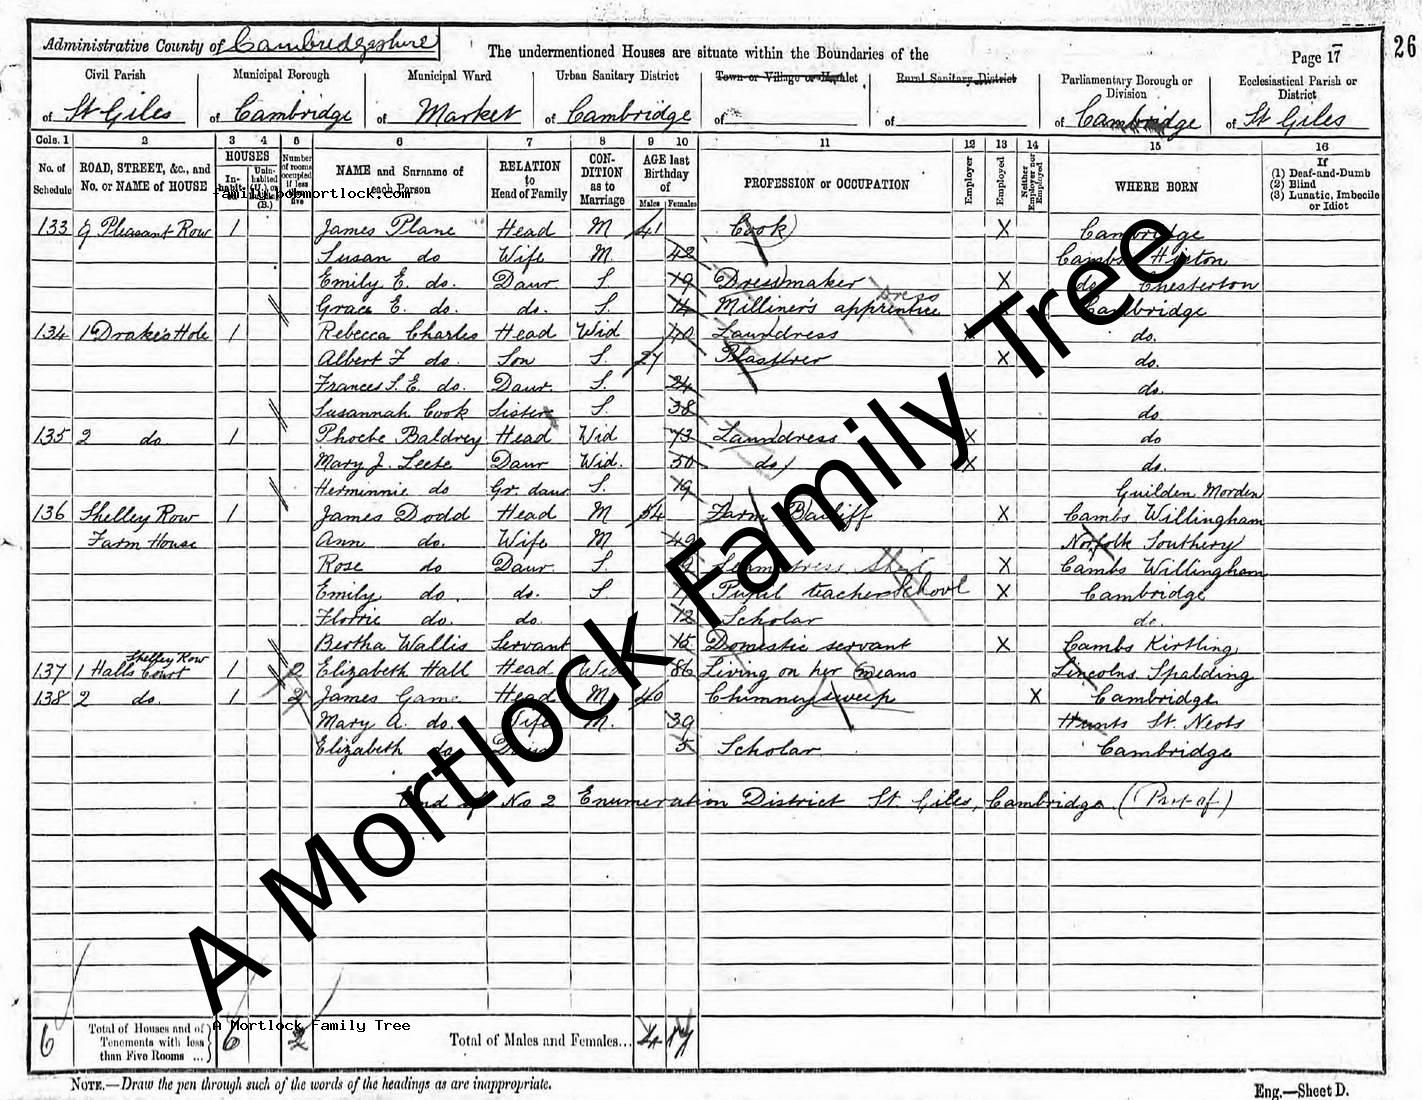 Administrative County of Cambridgeshire
The undermentioned Houses are situate within the Boundaries of the
Page 17
26
Civil Parish of St Giles
Municipal Borough of Cambridge
Municipal Ward of Market
Urban Sanitary District of Cambridge
Town or Village or Hamlet of
Rural Sanitary District of
Parliamentary Borough or Division of Cambridge
Ecclesiastical Parish or District of St Giles
Cols. 1 2 3 4 5 6 7 8 9 10 11 12 13 14 15 16
No. of Schedule
ROAD, STREET, &c., and No. or NAME of HOUSE
HOUSES
In-habit-ed
Unin-habited (U.) or (B.)
Number of rooms occupied if less than five
NAME and Surname of each Person
RELATION to Head of Family
CON-DITION as to Marriage
AGE last Birthday of
Males Females
PROFESSION or OCCUPATION
Employer
Employed
Neither Employer nor Employed
WHERE BORN
If
(1) Deaf-and-Dumb
(2) Blind
(3) Lunatic, Imbecile or Idiot
family.bobmortlock.com
133 9 Pleasant Row 1 James Plane Head M 41 Cook X Cambridge
Susan do Wife M 42 Cambs Histon
Emily E. do. Daur S. 19 Dressmaker X do Chesterton
Grace E. do. do. S. 14 Milliner's apprentice Dress Cambridge
134 1 Drake's Hole 1 Rebecca Charles Head Wid 40 Laundress X do.
Albert F do. Son S. 27 Plasterer X do.
Frances S. E. do. Daur. S. 24 do.
Susannah Cook Sister S. 38 do.
135 2 do 1 Phoebe Baldrey Head Wid 73 Laundress X do
Mary J. Leete Daur Wid. 50 do X do.
Herminnie do Gr. daur S. 19 Guilden Morden
136 Shelley Row 1 James Dodd Head M 54 Farm Bailiff X Cambs Willingham
Farm House Ann do. Wife M 49 Norfolk Southery
Rose do Daur. S. X Cambs Willingham
Emily do. do. S Pupil teacher School X Cambridge
Florrie do. do. 12 Scholar do.
Bertha Wallis Servant 15 Domestic servant X Cambs Kirtling
137 1 Halls Court Shelley Row 1 2 Elizabeth Hall Head Wid 86 Living on her means Lincolns. Spalding
138 2 do. 1 2 James Game Head M 40 Chimneysweep X Cambridge
Mary A. do. Wife M. 39 Hunts St. Neots
Elizabeth do Daur 5 Scholar Cambridge
End of No 2 Enumeration District St. Giles, Cambridge. (Part of)
A Mortlock Family Tree
6 Total of Houses and of Tenements with less than Five Rooms ... 6 2 Total of Males and Females... 4 17
A Mortlock Family Tree
NOTE.—Draw the pen through such of the words of the headings as are inappropriate.
Eng.—Sheet D.